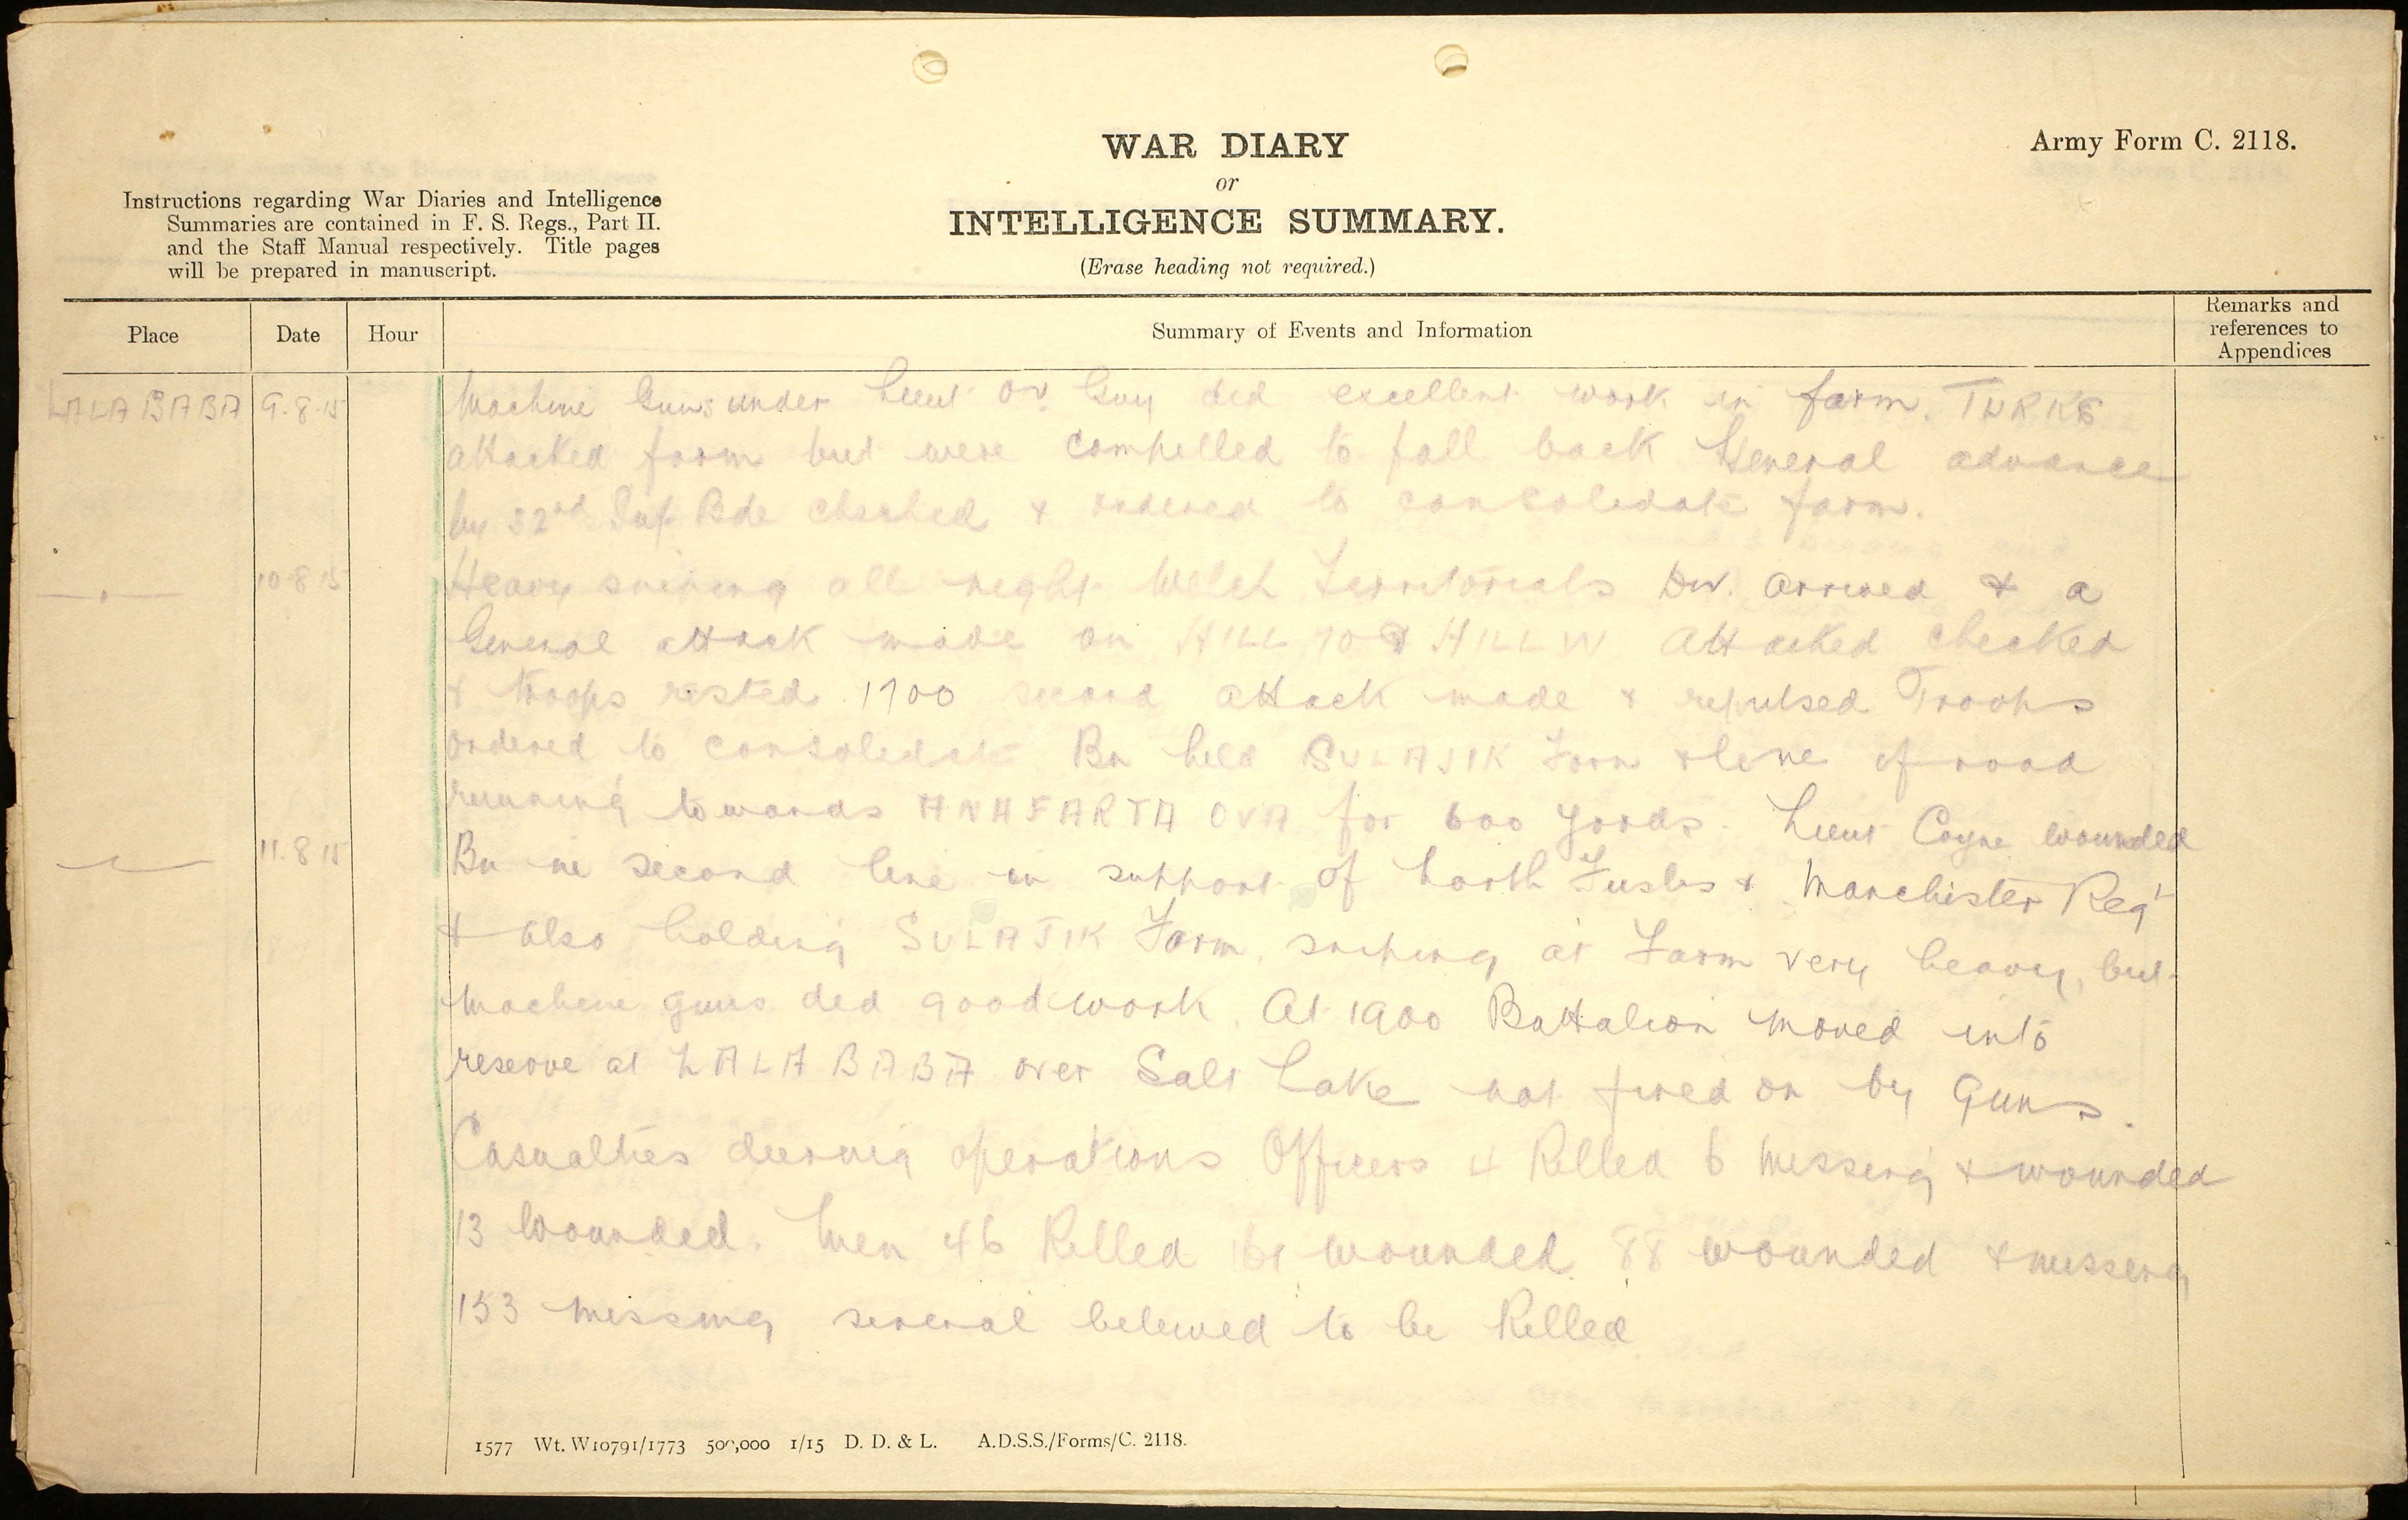 WAR DIARY
or
INTELLIGENCE SUMMARY.
(Erase heading not required.)
Army Form C. 2118.
Instructions regarding War Diaries and Intelligence
Summaries are contained in F. S. Regs., Part II.
and the Staff Manual respectively. Title pages
will be prepared in manuscript.
Place Date Hour Summary of Events and Information Remarks and references to Appendices
LALA BABA 9.8.15 Machine Guns under Lieut Guy did excellent work in farm. TURKS
attacked farm but were compelled to fall back General advance
by 32nd Inf Bde checked & ordered to consolidate farm.
10.8.15 Heavy sniping all night Welch Territorials Div. arrived & a
General attack made on HILL 70 & HILL W Attacked checked
& troops rested. 1700 second attack made & repulsed Troops
ordered to consolidate Bn held SULAJIK Farm & line of road
running towards ANAFARTA OVA for 600 yards. Lieut Coyne wounded
11.8.15 Bn in second line in support of North Fuslrs & Manchester Regt
& also holding SULAJIK Farm, sniping at Farm very heavy, but
Machine guns did good work. At 1900 Battalion moved into
reserve at LALA BABA over Salt Lake not fired on by Guns.
Casualties during operations Officers 4 Killed 6 Missing & wounded
13 Wounded. Men 46 Killed wounded 88 wounded & missing
153 Missing several believed to be Killed
1577 Wt. W10791/1773 500,000 1/15 D. D. & L. A.D.S.S./Forms/C. 2118.